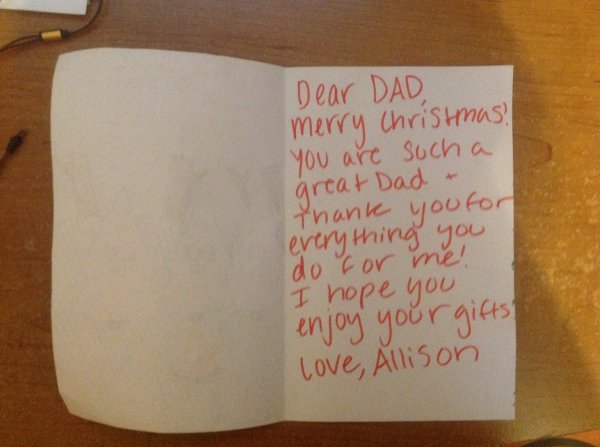 Dear DAD,
merry christmas!
you are such a
great Dad -
Thank you for
everything you
do for me!
I hope you
enjoy your gifts!
Love, Allison